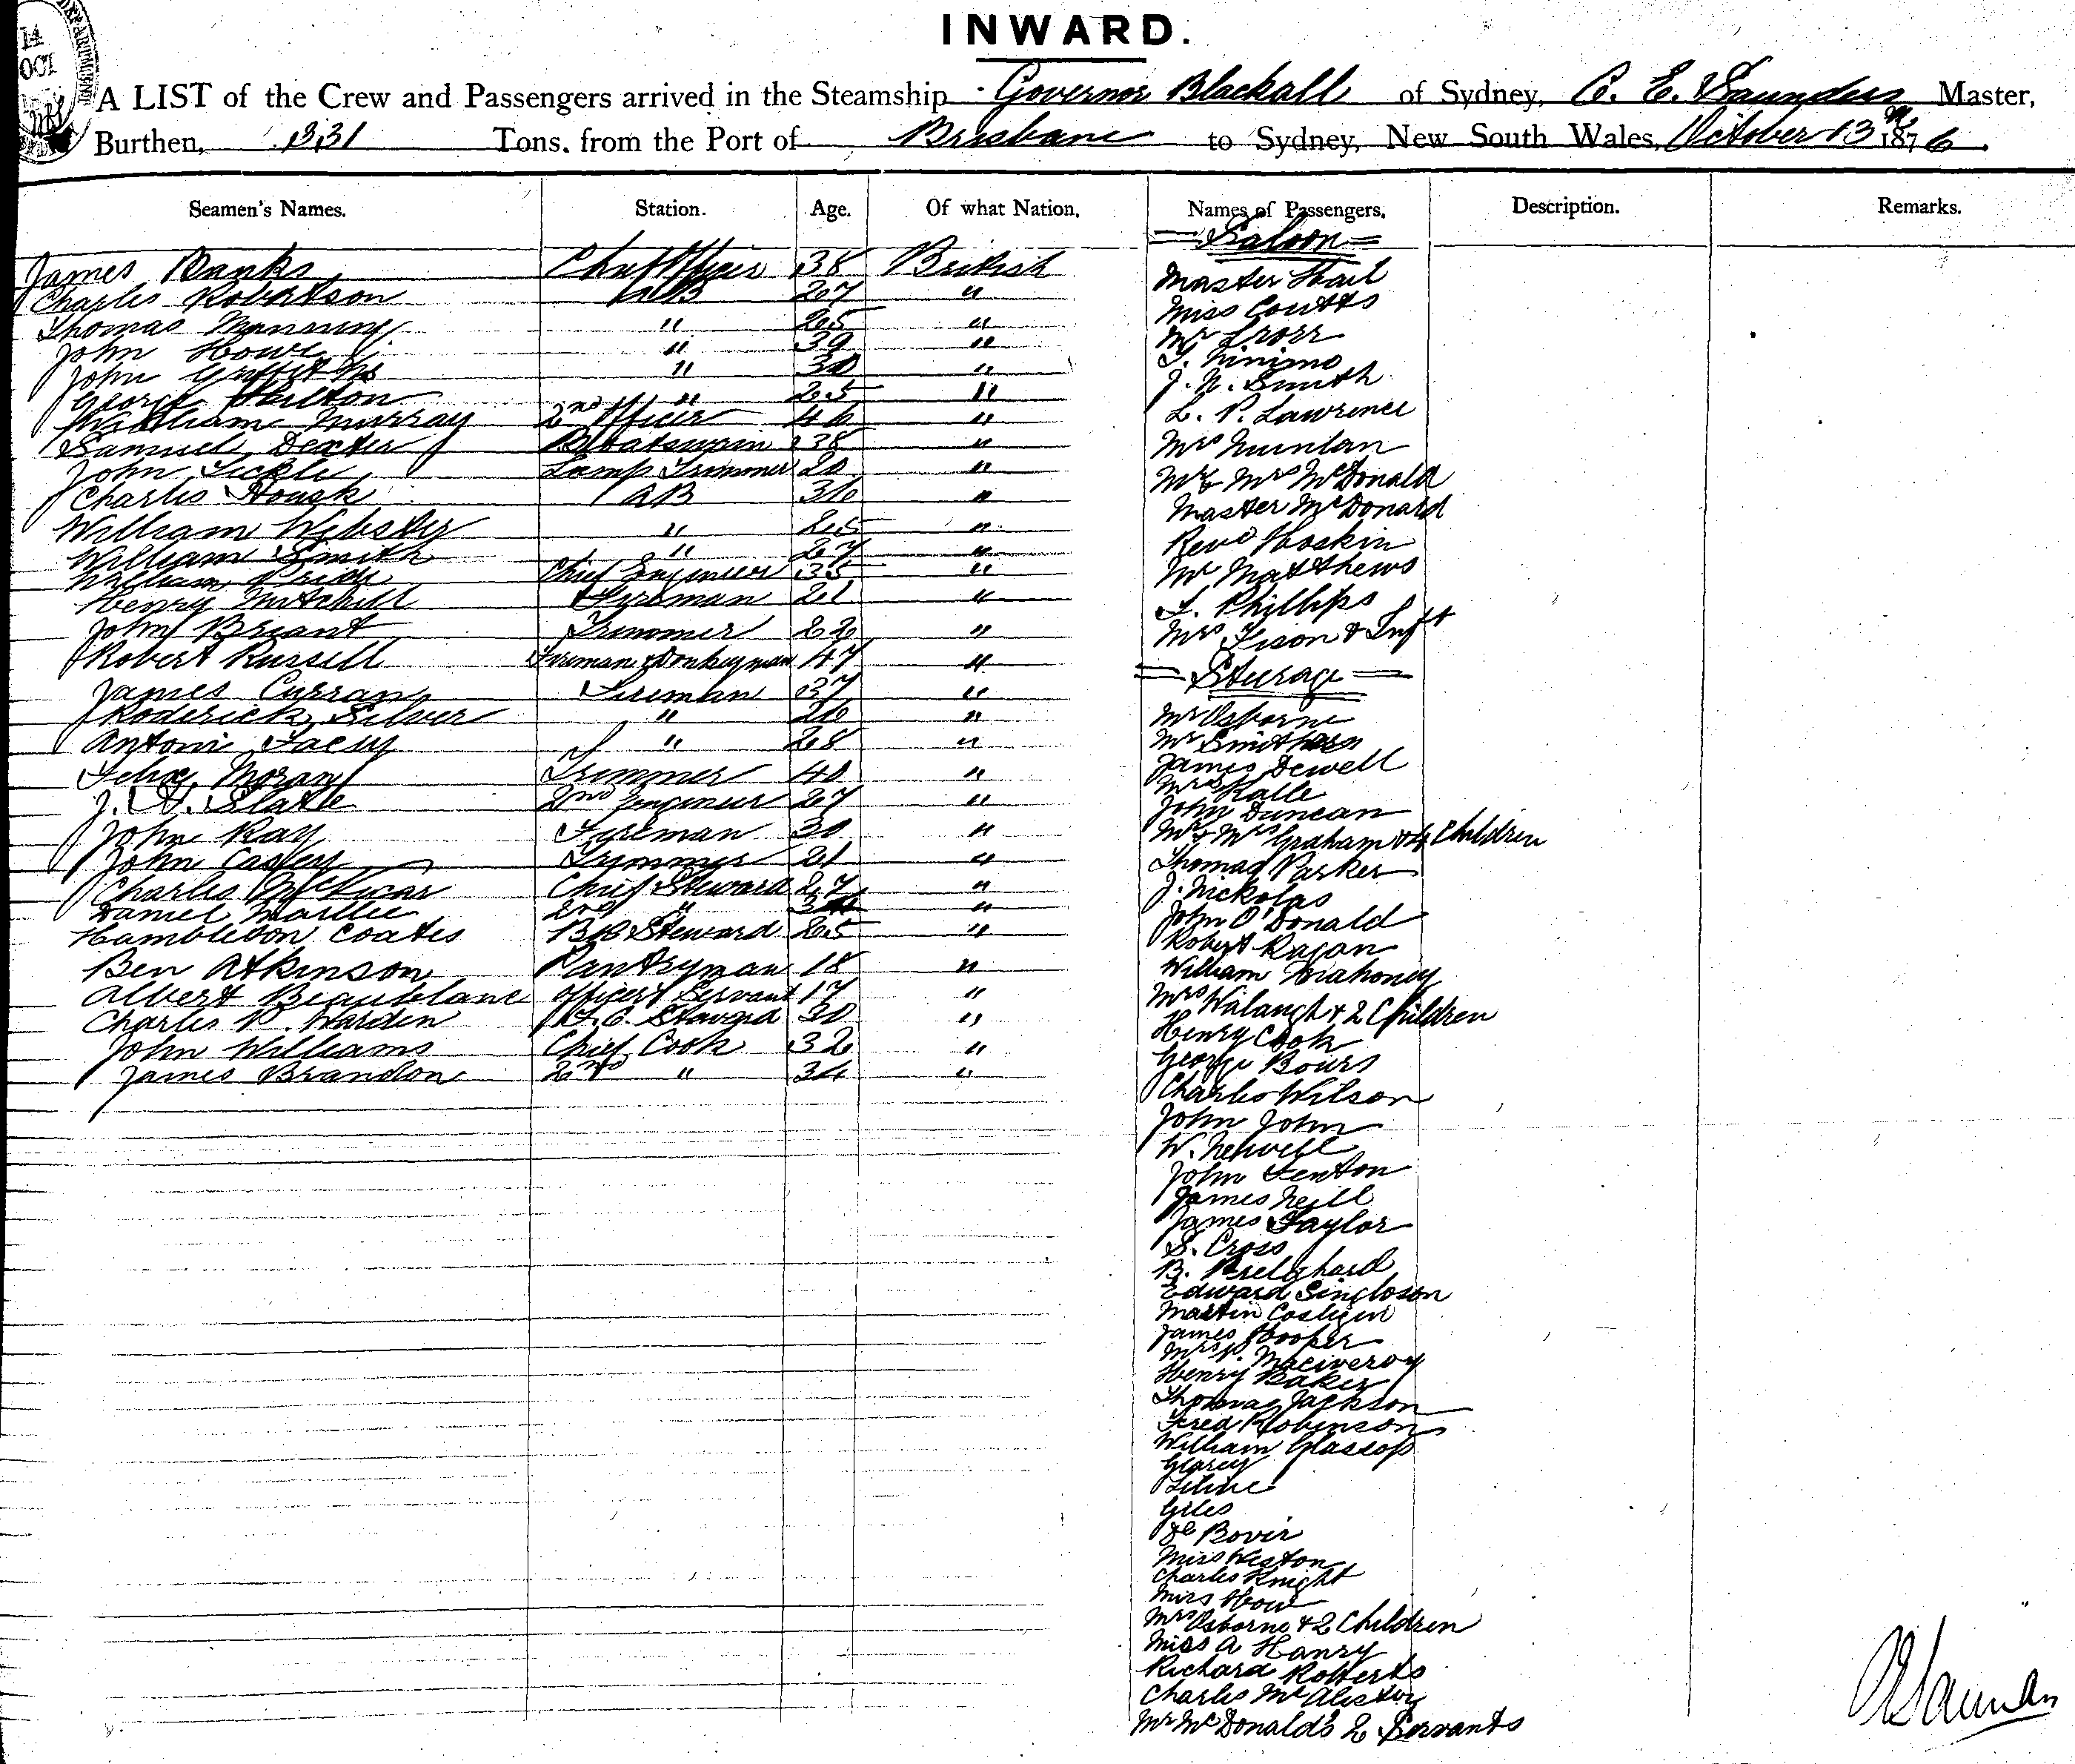 14
OCT
INWARD.
A LIST of the Crew and Passengers arrived in the Steamship Governor Blackall of Sydney, C. E. Saunders Master,
Burthen, 331 Tons, from the Port of Brisbane to Sydney, New South Wales, October 13th 1876.
Seamen's Names. Station. Age. Of what Nation. Names of Passengers. Description. Remarks.
= Saloon =
James Banks Chief Officer 38 British Master Hail
Charles Robertson AB 27 " Miss Coutts
Thomas Manning " 25 " Mr
John Howe " 39 " Nimmo
John Griffiths " 30 " J. N. Smith
George Hilton " 25 "
William Murray 2nd Officer 46 " L. P. Lawrence
Samuel Dexter Boatswain 38 " Mrs Quinlan
John Tickle Lamp Trimmer 20 " Mr & Mrs McDonald
Charles Hough AB 36 " Master McDonald
William Webster " 25 " Revd Hoskin
William Smith " 27 " Mr Matthews
William Pride Chief Engineer 35 "
Henry Mitchell Fireman 21 " Phillips
John Bryant Trimmer 22 " Mrs Tison & Inft
Robert Russell Fireman & Donkeyman 47 " = Steerage =
James Curran Fireman 37 "
Roderick Silver " 26 " Mr Osborne
Antoni " 28 " Mr
Felix Moran Trimmer 40 " James Dewell
J. Slatle 2nd Engineer 27 " Mrs Kalle
John Duncan
John Ray Fireman 30 " Mr & Mrs Graham & 4 Children
John Casley Trimmer 21 " Thomas Parker
Charles McVicar Chief Steward 27 " J. Nickolas
Daniel 2nd " "  John O'Donald
Hamblebon Coates B.R Steward 25 " Robert Ragan
Ben Atkinson Pantryman 18 " William Mahoney
Albert Beaublanc Officers Servant 17 " Mrs Walaugh & 2 Children
Charles P. Warden F.C. Steward 30 " Henry Cook
John Williams Chief Cook 32 " George Bours
James Brandon 2nd " 34 " Charles Wilson
John John
W. Newell
John Fenton
James Neill
James Taylor
S. Cross
B.
Edward Singloson
Martin Costigin
James Hooper
Mrs P. Maciveroy
Henry Baker
Thomas Jackson
Fred Robinson
William Glassop
Giles
De Bovir
Miss Weston
Charles Knight
Miss How
Mrs Osborne & 2 Children
Miss A Hanry
Richard Roberts
Charles McAlister
Mr McDonald's 2 Servants